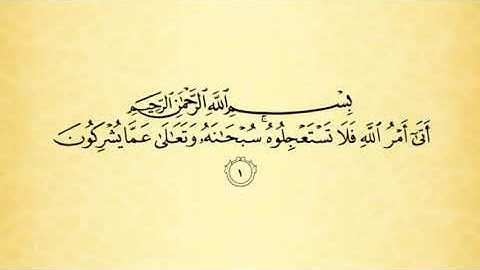 بِسْمِ ٱللَّهِ ٱلرَّحْمَٰنِ ٱلرَّحِيمِ
أَتَىٰٓ أَمْرُ ٱللَّهِ فَلَا تَسْتَعْجِلُوهُ ۚ سُبْحَٰنَهُۥ وَتَعَٰلَىٰ عَمَّا يُشْرِكُونَ
١